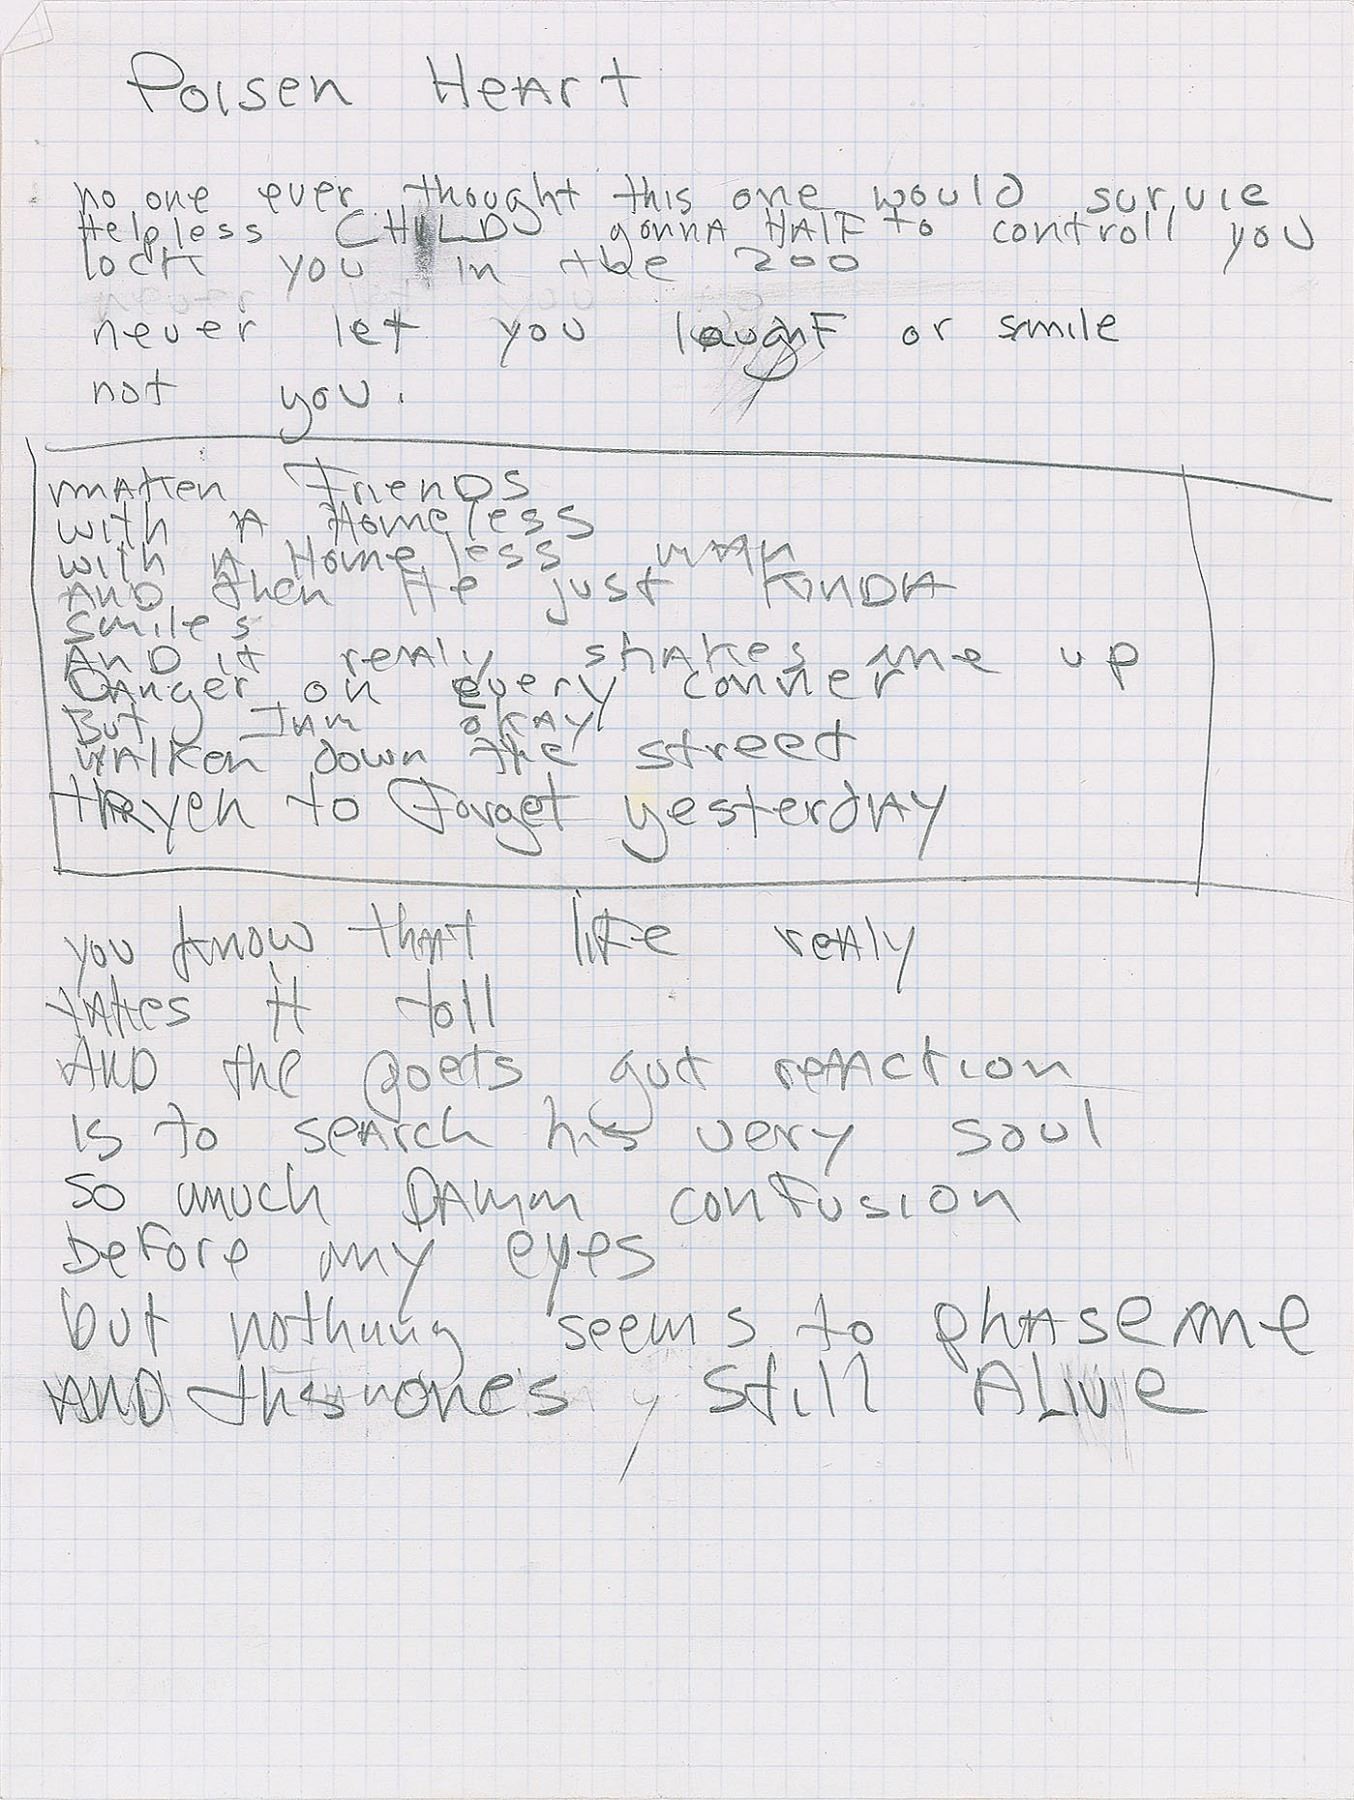 Poisen Heart
no one ever thought this one would survie
Helpless CHILD gonna HALF to controll you
lock you in the zoo
never let you laughf or smile
not you.
maken Friends
with A Homeless
with A Homeless man
AND then He just KINDA
smiles
AND it realy shakes me up
Danger on every conner
But Imm okay
walken down the street
thryen to Forget yesterday
you know that life realy
takes it toll
AND the poets gut reaction
is to search his very soul
so much Damm confusion
before my eyes
but nothing seems to phase me
AND this ones still Alive